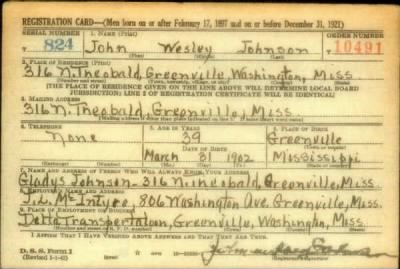 REGISTRATION CARD—(Men born on or after February 17, 1897 and on or before December 31, 1921)
SERIAL NUMBER 1. NAME (Print) ORDER NUMBER
T 824 John Wesley Johnson 10491
(First) (Middle) (Last)
2. PLACE OF RESIDENCE (Print)
316 N. Theobald, Greenville, Washington, Miss
(Number and street) (Town, township, village, or city) (County) (State)
[THE PLACE OF RESIDENCE GIVEN ON THE LINE ABOVE WILL DETERMINE LOCAL BOARD
JURISDICTION; LINE 2 OF REGISTRATION CERTIFICATE WILL BE IDENTICAL]
3. MAILING ADDRESS
316 N. Theobald, Greenville, Miss.
[Mailing address if other than place indicated on line 2. If same insert word same]
4. TELEPHONE 5. AGE IN YEARS 6. PLACE OF BIRTH
None 39 Greenville
DATE OF BIRTH (Town or county)
March 31 1902 Mississippi
(Exchange) (Number) (Mo.) (Day) (Yr.) (State or country)
7. NAME AND ADDRESS OF PERSON WHO WILL ALWAYS KNOW YOUR ADDRESS
Gladys Johnson - 316 N. Theobald, Greenville, Miss.
8. EMPLOYER'S NAME AND ADDRESS
McIntyre, 806 Washington Ave. Greenville, Miss.
9. PLACE OF EMPLOYMENT OR BUSINESS
Delta Transportation, Greenville, Washington, Miss
(Number and street or R. F. D. number) (Town) (County) (State)
I AFFIRM THAT I HAVE VERIFIED ABOVE ANSWERS AND THAT THEY ARE TRUE.
D. S. S. Form 1
(Revised 1-1-42)